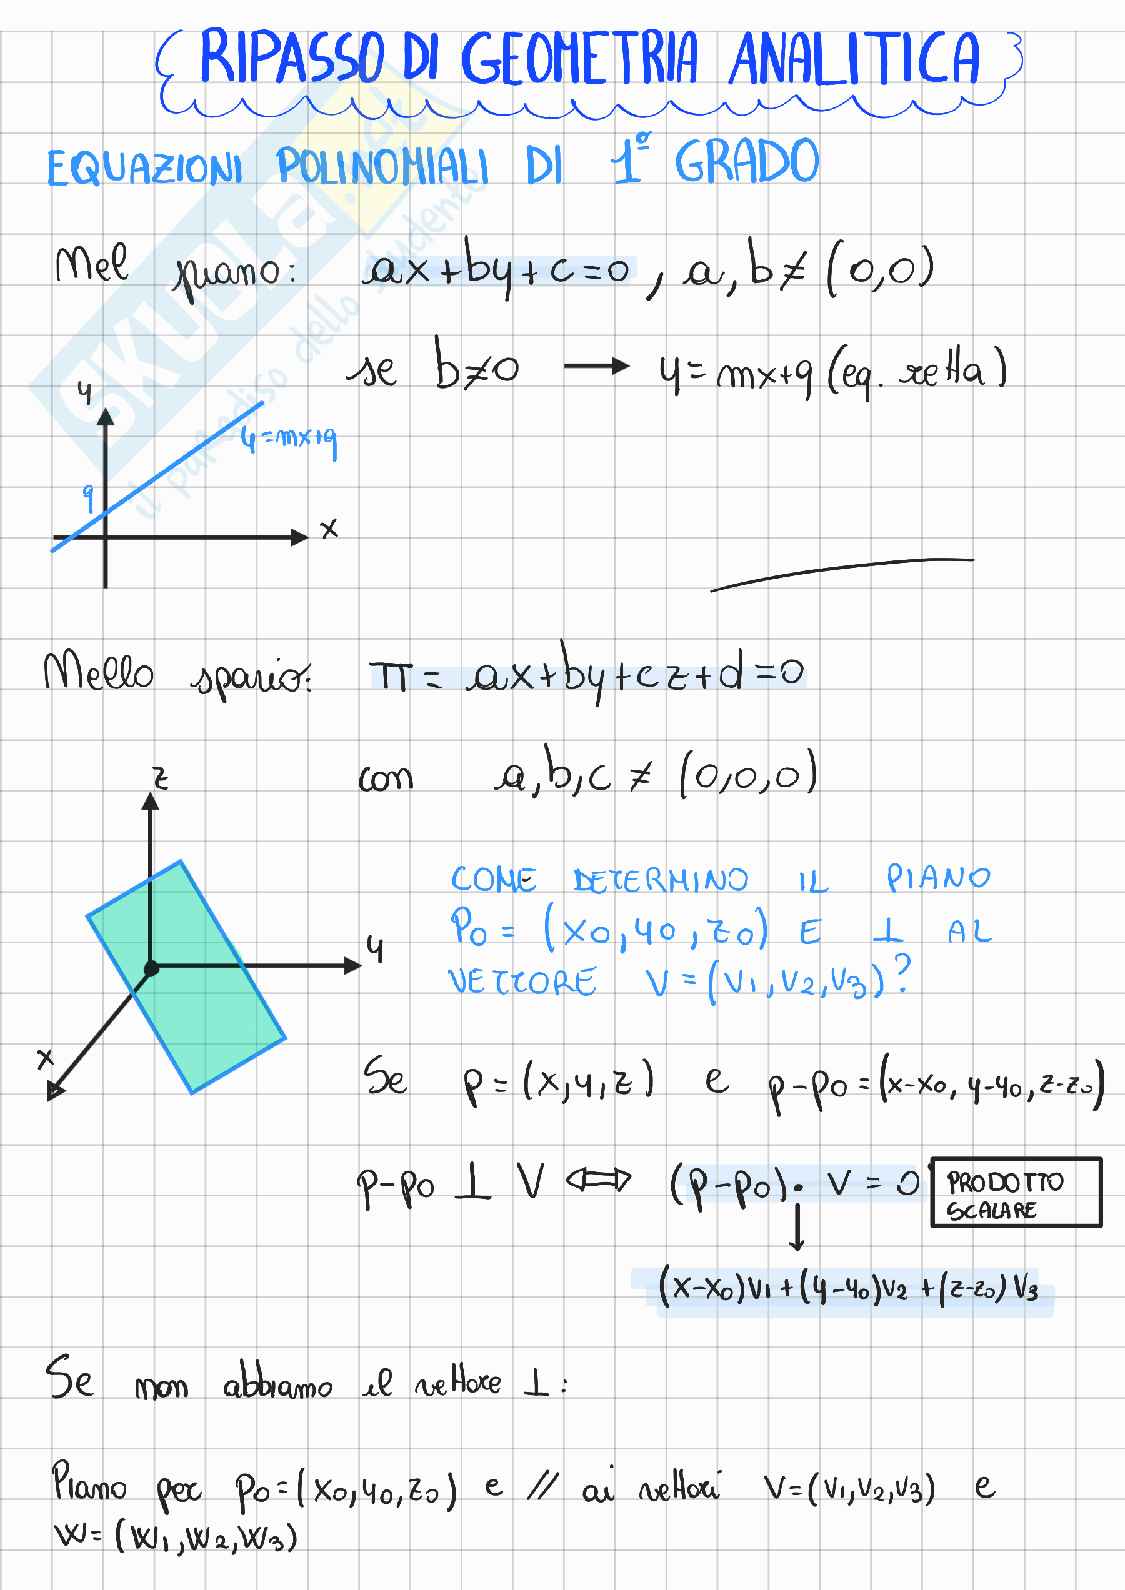 RIPASSO DI GEOMETRIA ANALITICA
EQUAZIONI POLINOMIALI DI 1º GRADO
Nel piano: ax+by+c=0, a, b≠(0,0)
se b≠0 → y=mx+q (eq. retta)
y
y=mx+q
q
x
Nello spazio: π= ax+by+cz+d=0
con a,b,c ≠ (0,0,0)
z
COME DETERMINO IL PIANO
P0 = (x0,y0,z0) E ⊥ AL
y
VETTORE V=(V1,V2,V3)?
x
Se p=(x,y,z) e p-p0=(x-x0, y-y0, z-z0)
p-p0 ⊥ V ⟺ (p-p0)· V = 0 PRODOTTO
SCALARE
↓
(x-x0)V1+(y-y0)V2+(z-z0)V3
Se non abbiamo il vettore ⊥:
Piano per P0=(x0,y0,z0) e // ai vettori V=(V1,V2,V3) e
W=(W1,W2,W3)
SKUOLA.net
il paradiso dello studente